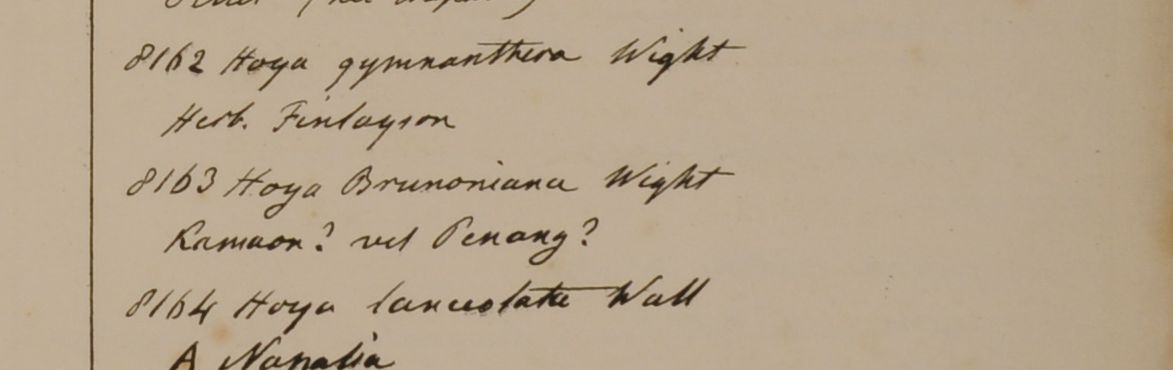 8162 Hoya gymnanthera Wight
Herb. Finlayson
8163 Hoya Brunoniana Wight
Kamaon? vel Penang?
8164 Hoya lanceolata Wall
A Napalia